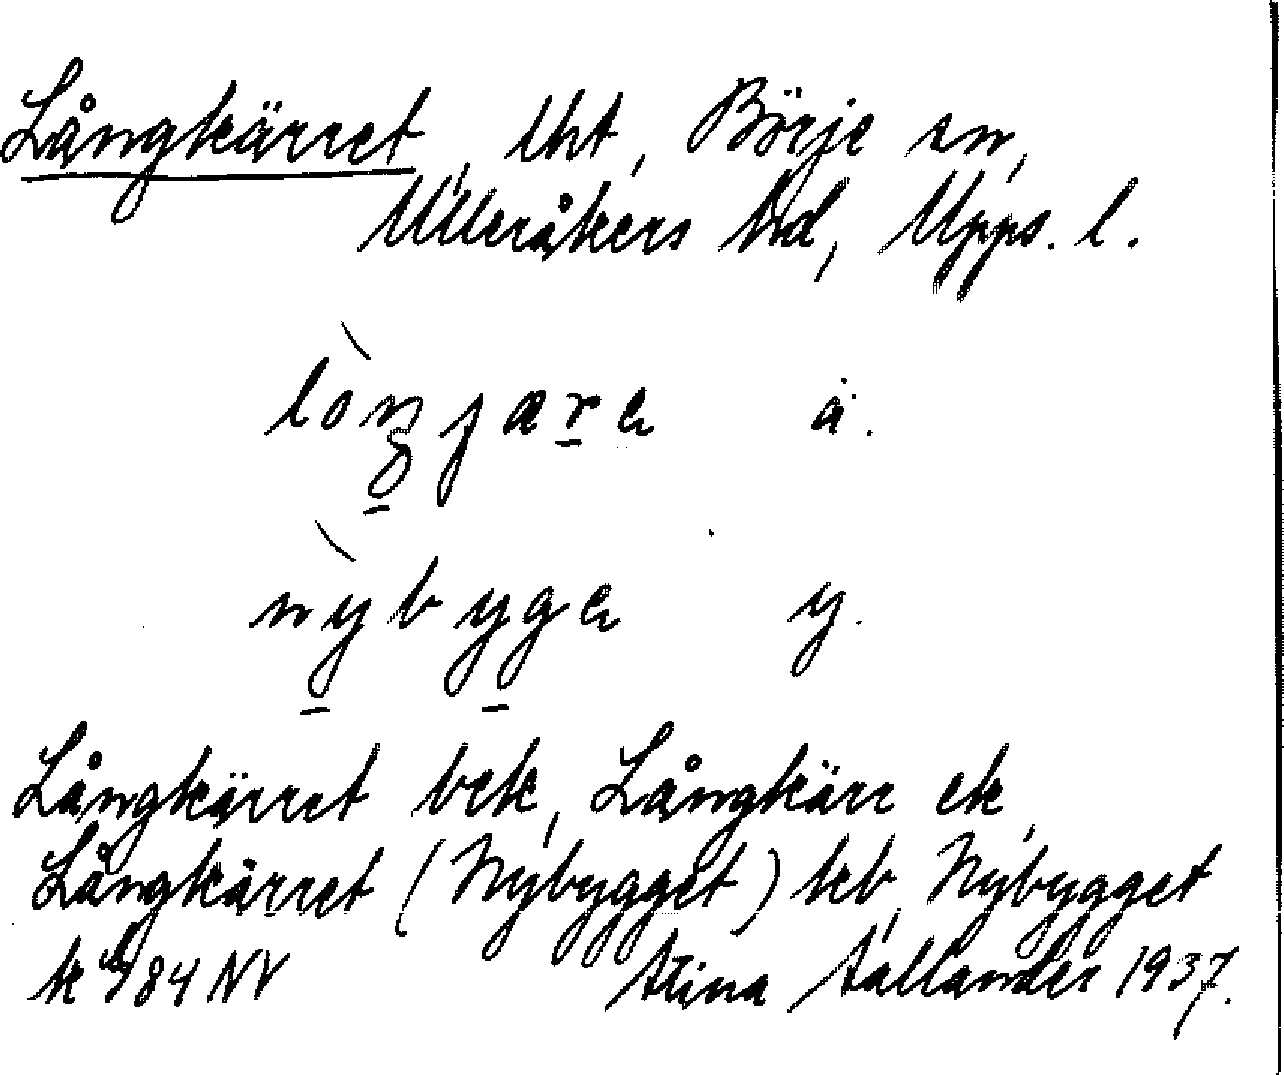 Långkärret, lht, Börje sn,
Ulleråkers hd, Upps. l.
lòŋjære ä.
nỳbyge y.
Långkärret bek, Långkärr ek,
Långkärret (Nybygget) hkb, Nybygget
k 984 NV Stina Tallander 1937.